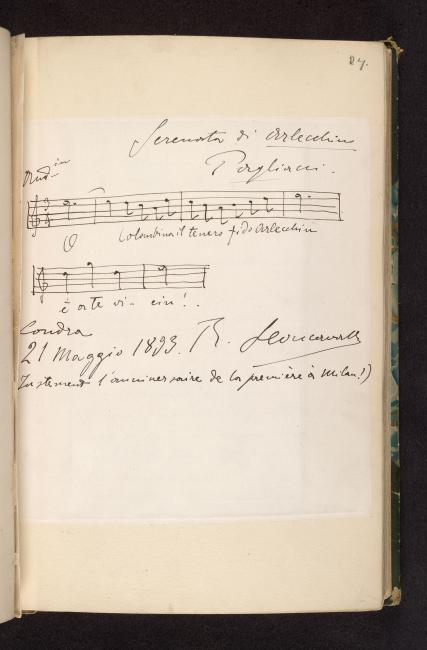 27.
Serenata di Arlecchino
Pagliacci.
And.ino
O Colombina il tenero fido Arlecchin
è a te vi- cin!..
Londra
21 Maggio 1893. R. Leoncavallo
Justement l'anniversaire de la première à Milan!)